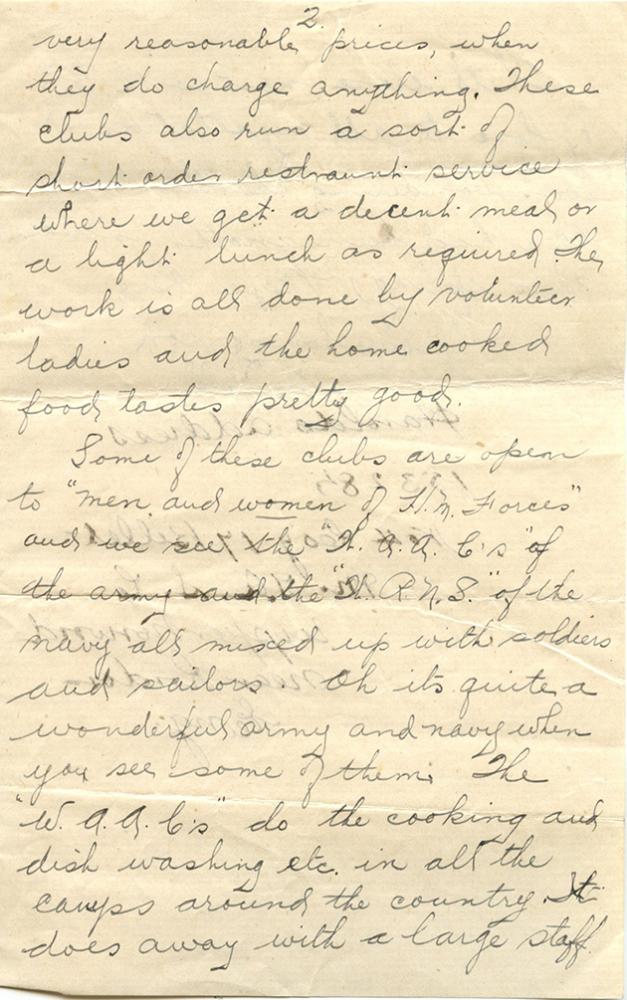 2.
very reasonable prices, when
they do charge anything. These
clubs also run a sort of
short order restraunt service
where we get a decent meal or
a light lunch as required. The
work is all done by volunteer
ladies and the home cooked
food tastes pretty good.
Some of these clubs are open
to "men and women of H.M. Forces"
and we see the "W. A. A. C's" of
the army and the "W. R. N. S." of the
navy all mixed up with soldiers
and sailors. Oh its quite a
wonderful army and navy when
you see some of them. The
"W. A. A. C's" do the cooking and
dish washing etc. in all the
camps around the country. It
does away with a large staff